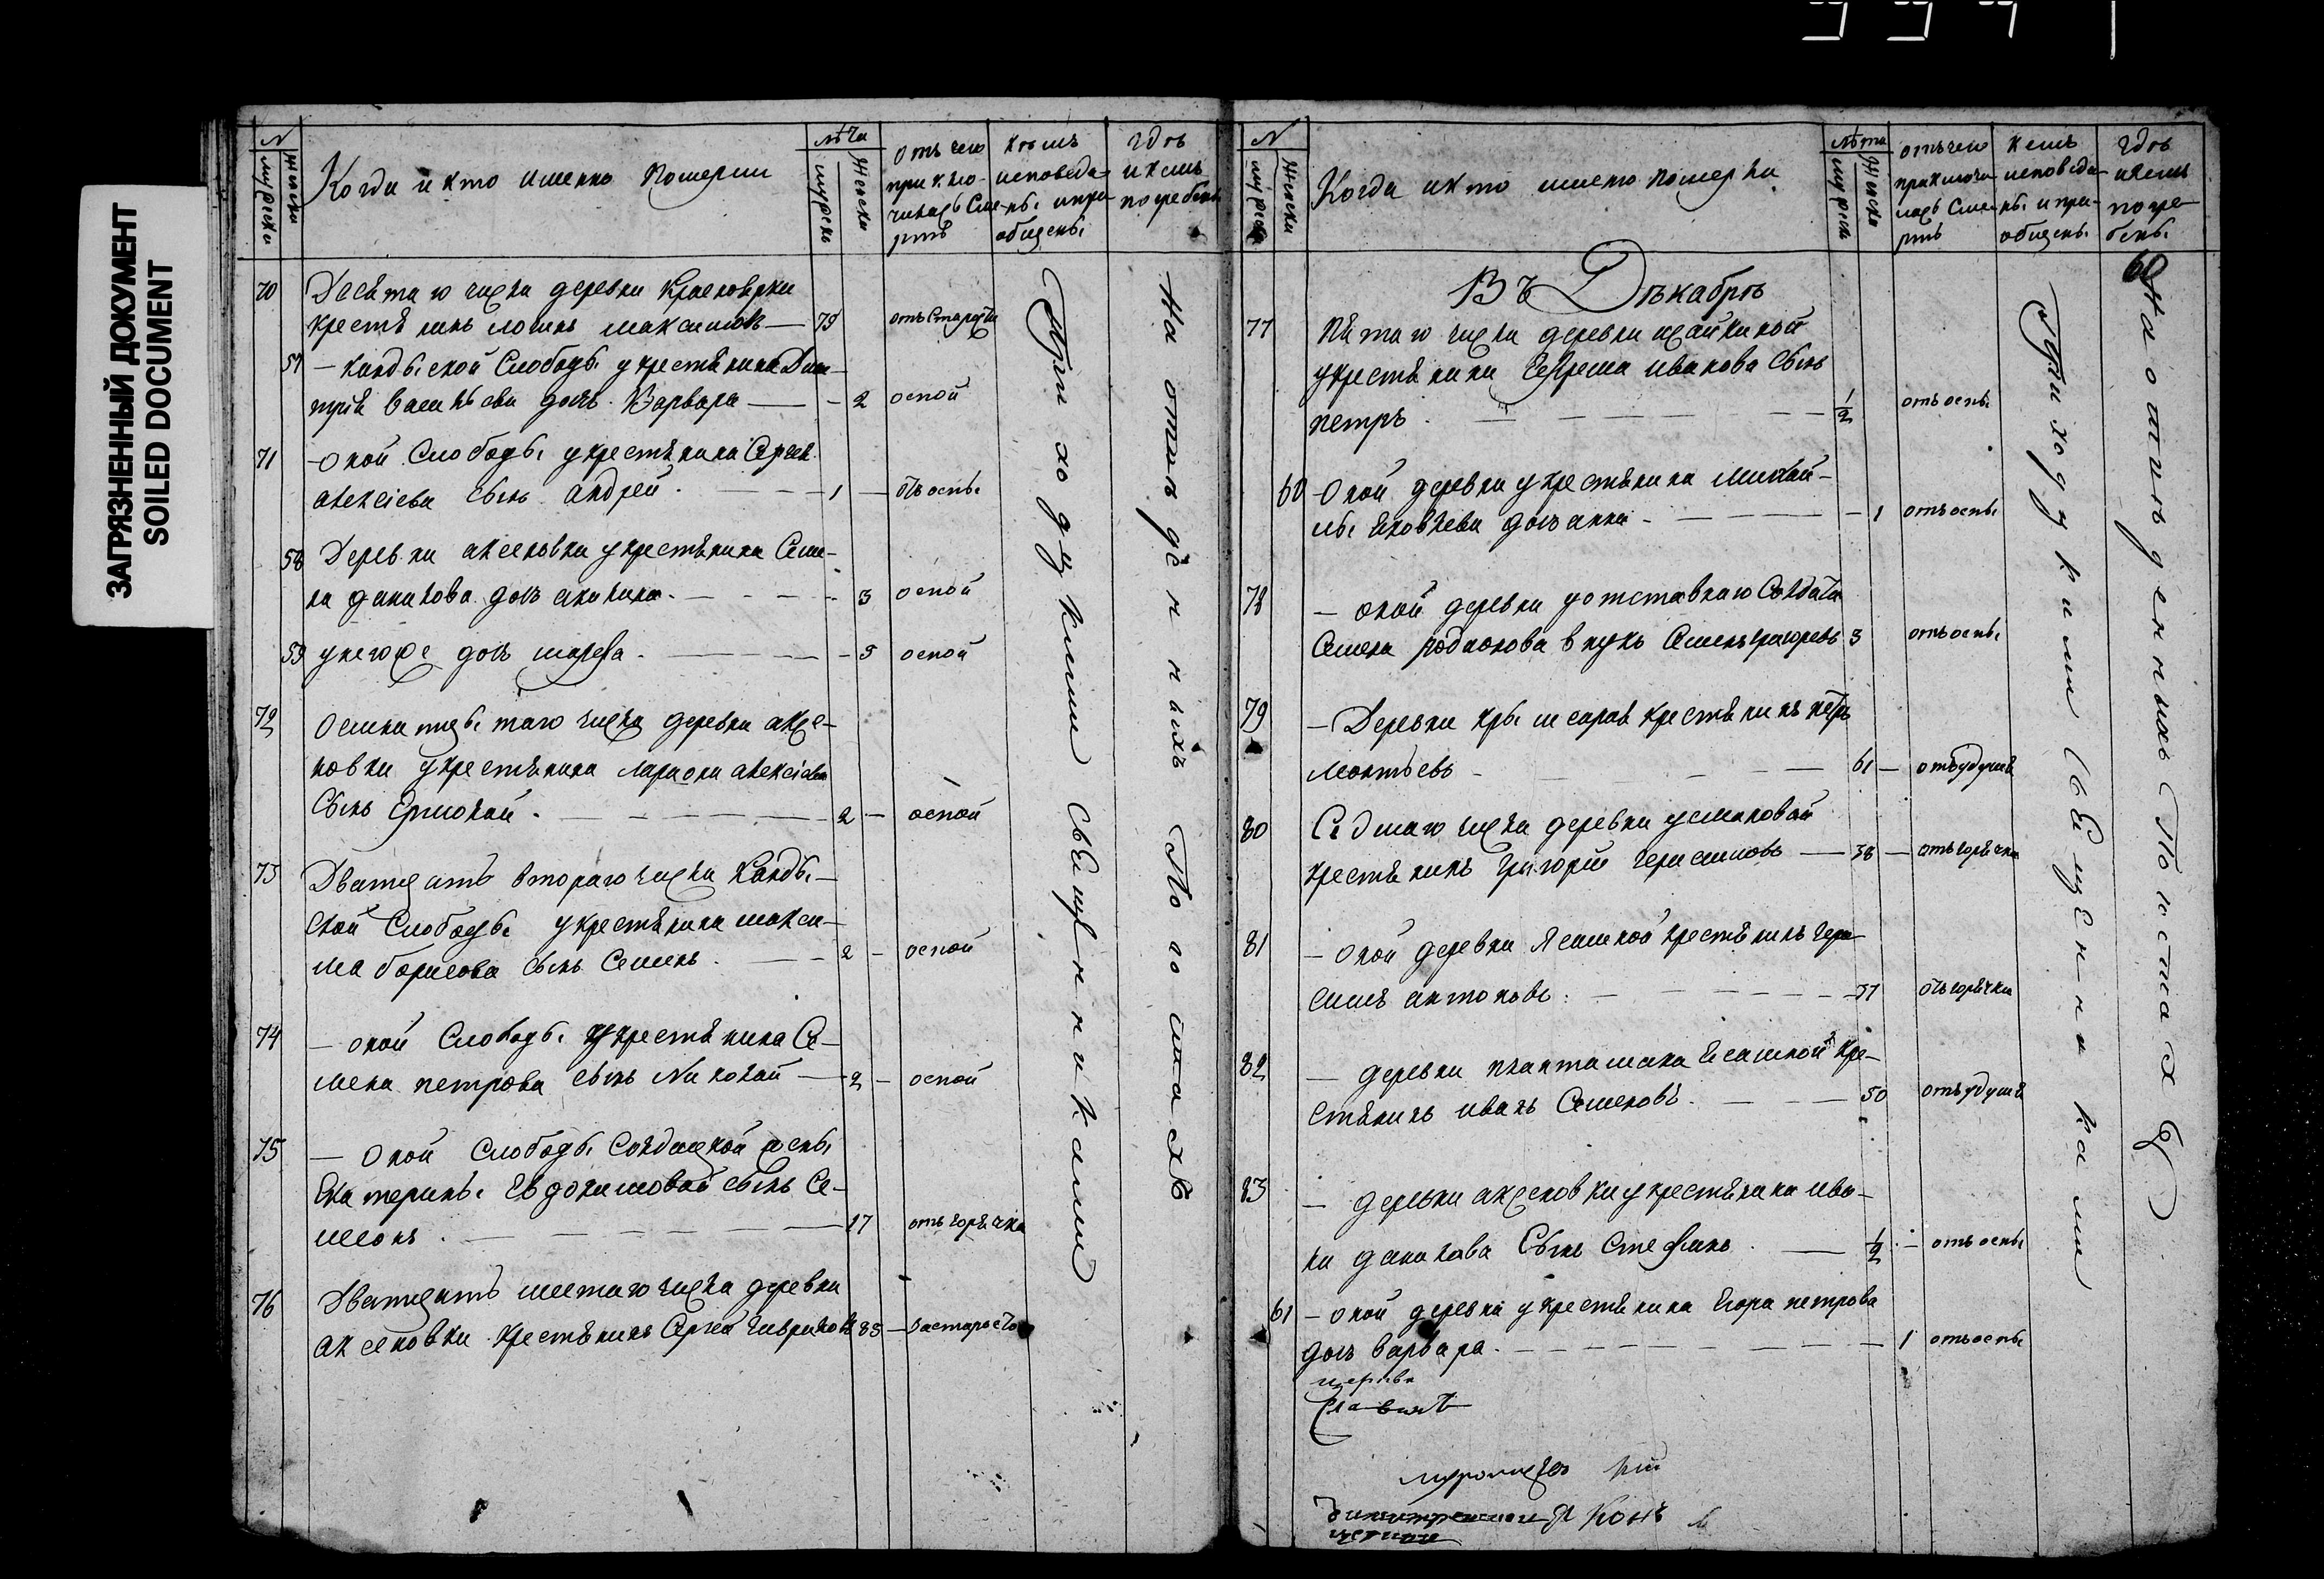 ЗАГРЯЗНЕННЫЙ ДОКУМЕНТ
SOILED DOCUMENT
N
мужеска
женска
Когда и кто именно померли
лѣта
мужеск
женска
отъ чего приклю-
чилась сме-
рть
кѣмъ
исповеда-
ны и при-
общены
гдѣ
и кемъ
погребены
70
Десятаго числа деревни Красноярки
крестьянинъ логинъ максимовъ — 75
отъ старости
57 — кандыской Слободы у крестьянина Дми-
трия васильева дочь Варвара — 2 оспой
71 — оной Слободы у крестьянина Сергея
алексіева сынъ андрей — 1 — отъ оспы
58 Деревни аксеновки у крестьянина Семе-
на данилова дочь акилина — 3 оспой
59 у негоже дочь марфа — 5 оспой
72
осмнатцытаго числа деревни аксе-
новки у крестьянина лариона алексіева
сынъ Ермолай — 2 — оспой
73
Дватцать втораго числа Канды-
ской Слободы у крестьянина макси-
ма борисова сынъ Семенъ — 2 — оспой
74
— оной Слободы у крестьянина Се-
мена петрова сынъ Николай — 2 — оспой
75
— Оной Слободы Солдацкой жены
Екатерины Евдокимовой сынъ Се-
менъ — 17 отъ горячки
76
Дватцать шестаго числа деревни
аксеновки крестьянинъ Сергей гавриловъ 85 — за старостью
Приходскими священниками
На отведенныхъ по местахъ
N
мужеска
женска
Когда и кто имено померли
лѣта
мужеск
женска
отъ чего
приключи-
лась сме-
рть
кемъ
исповеда-
ны и при-
общены
гдѣ
и кемъ
погре-
бены
60
Въ Дѣкабрѣ
77
пятаго числа деревни
у крестьянина Ефрема иванова сынъ
петръ — 1/2 отъ оспы
60 — Оной деревни у крестьянина михай-
лы яковлева дочь анна — 1 отъ оспы
78
— оной деревни у отставнаго Солдата
Семена родионова внукъ Семенъ григорьевъ 3 отъ оспы
79
— Деревни крестьянинъ петръ
леонтьевъ — 61 — отъ удушя
80
Седмаго числа деревни усмановой
крестьянинъ Григорій герасимовъ — 38 — отъ горячки
81
— оной деревни Ясашной крестьянинъ гера-
симъ антоновъ — 37 отъ горячки
82
— деревни Ясашной кре-
стьянинъ иванъ Семеновъ — 50 отъ удушя
83
— деревни аксеновки у крестьянина ива-
на данилава сынъ Стефанъ — 1/2 — отъ оспы
61 — оной деревни у крестьянина Егора петрова
дочь варвара — 1 отъ оспы